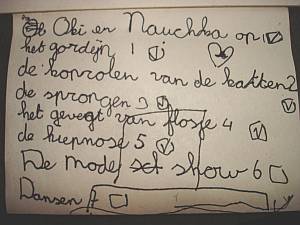 Obi en Nauchka op 1
het gordejn 1
de konrolen van de katten 2
de sprongen 3
het gevegt van flosje 4
de hiepnose 5
De mode show 6
Dansen 7